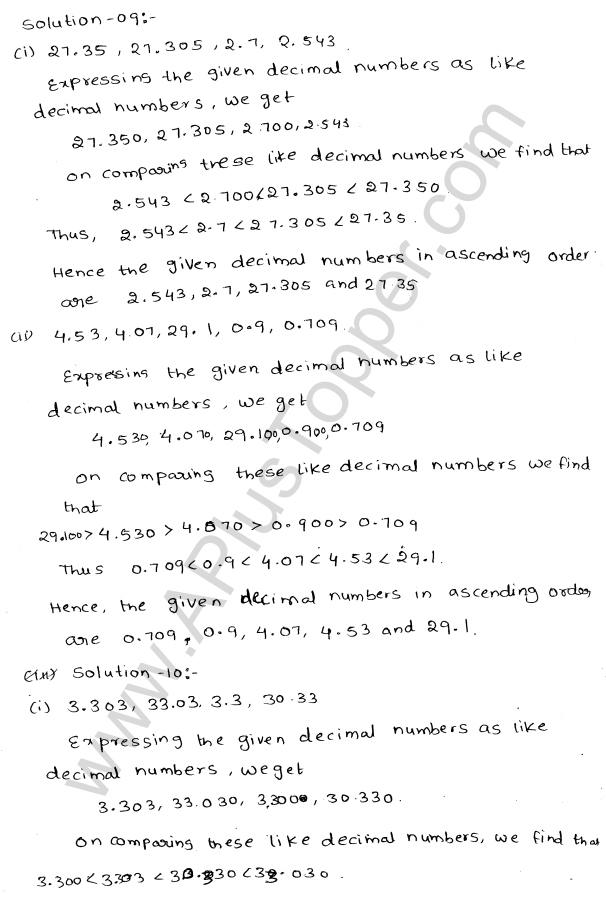 Solution-09:-
(i) 27.35, 27.305, 2.7, 2.543.
Expressing the given decimal numbers as like
decimal numbers, we get
27.350, 27.305, 2.700, 2.543
on comparing these like decimal numbers we find that
2.543 < 2.700 < 27.305 < 27.350.
Thus, 2.543 < 2.7 < 27.305 < 27.35.
Hence the given decimal numbers in ascending order.
are 2.543, 2.7, 27.305 and 27.35
(ii) 4.53, 4.07, 29.1, 0.9, 0.709.
Expressing the given decimal numbers as like
decimal numbers, we get
4.530, 4.070, 29.100, 0.900, 0.709
on comparing these like decimal numbers we find
that
29.100 > 4.530 > 4.070 > 0.900 > 0.709
Thus 0.709 < 0.9 < 4.07 < 4.53 < 29.1.
Hence, the given decimal numbers in ascending order,
are 0.709, 0.9, 4.07, 4.53 and 29.1.
Solution-10:-
(i) 3.303, 33.03, 3.3, 30.33
Expressing the given decimal numbers as like
decimal numbers, we get
3.303, 33.030, 3.300, 30.330.
On comparing these like decimal numbers, we find that
3.300 < 3.303 < 30.330 < 33.030.
www.APlusTopper.com